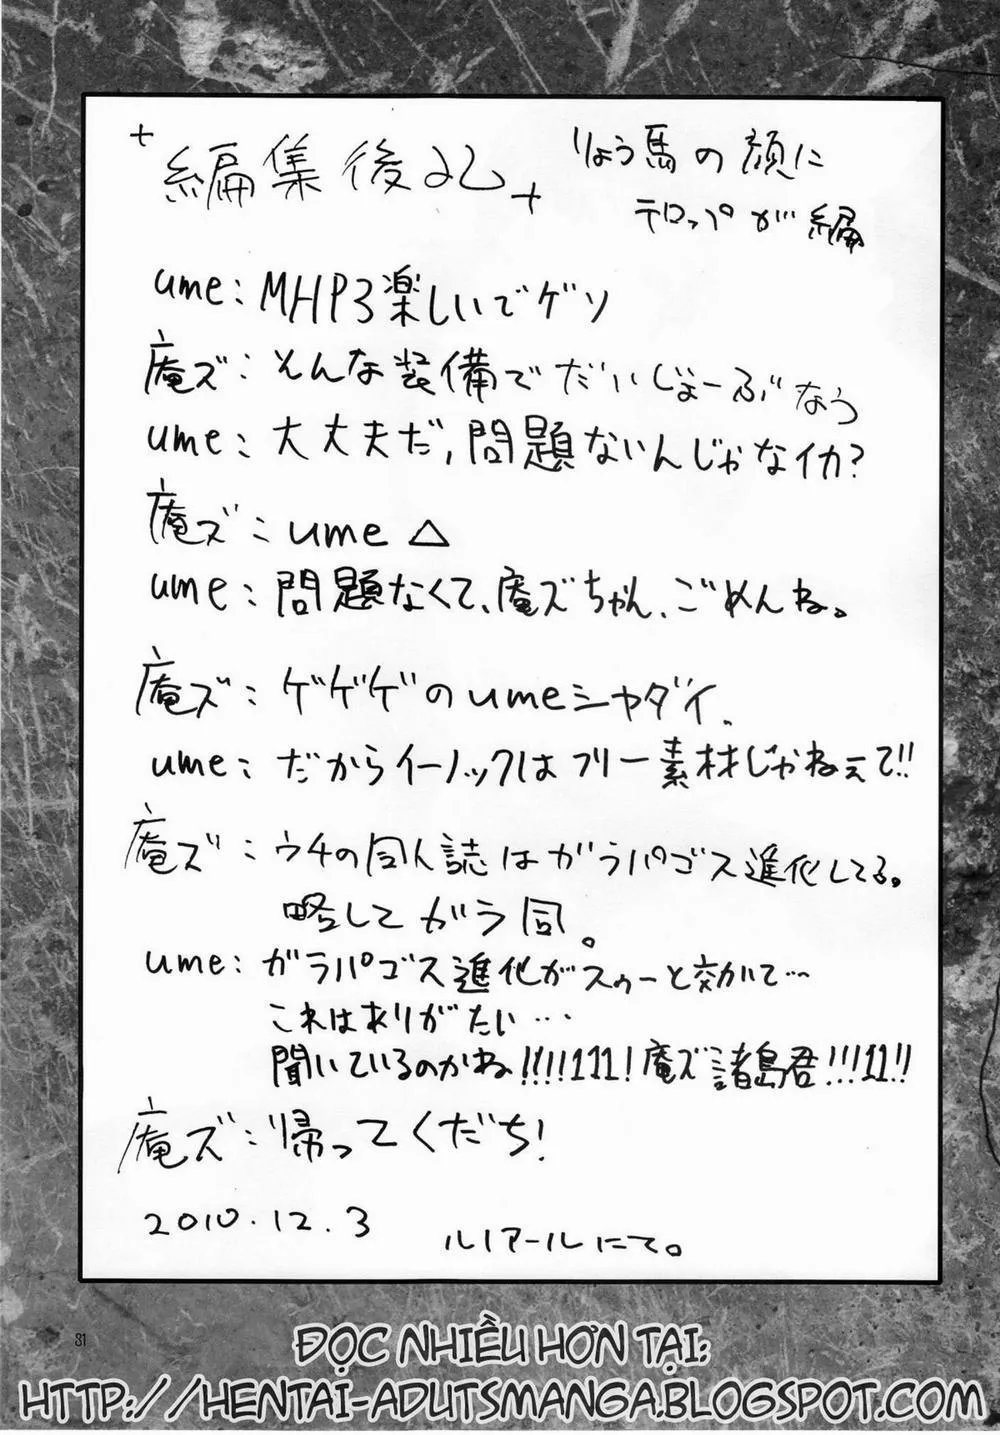 +編集後記+
りょう馬の顔に
テロップが編
ume:MHP3楽しいでゲソ
庵ズ:そんな装備でだいじょーぶなう
ume:大丈夫だ、問題ないんじゃなイカ?
庵ズ:ume△
ume:問題なくて、庵ズちゃん、ごめんね。
庵ズ:ゲゲゲのumeシャダイ、
ume:だからイーノックはフリー素材じゃねぇて!!
庵ズ:ウチの同人誌はガラパゴス進化してる。
略してガラ同。
ume:ガラパゴス進化がスゥーと効いて…
これはありがたい…
聞いているのかね!!!!111!庵ズ諸島君!!!11!!
庵ズ:帰ってくだち!
2010.12.3
ルノアールにて。
31
ĐỌC NHIỀU HƠN TẠI:
HTTP://HENTAI-ADUTSMANGA.BLOGSPOT.COM